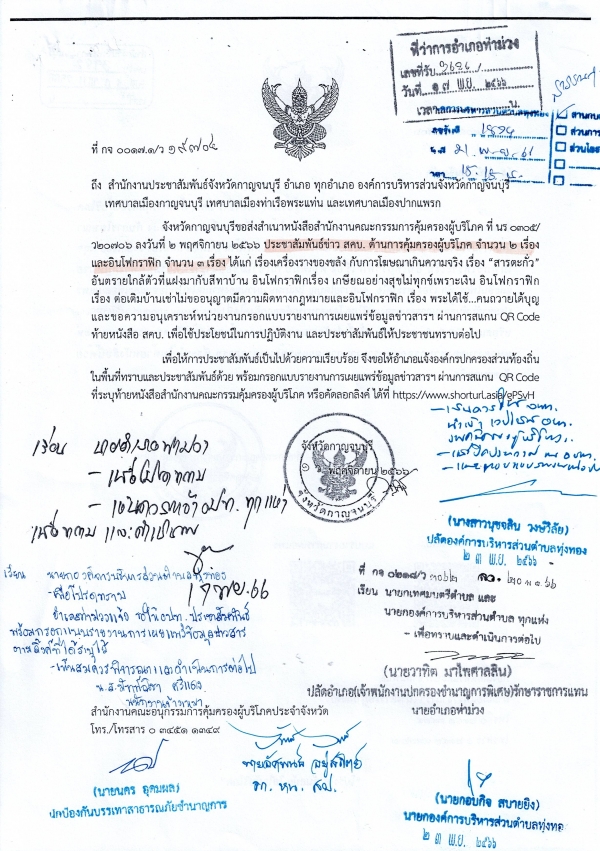 ที่ว่าการอำเภอท่าม่วง
เลขที่รับ
วันที่ ๑๗ พ.ย. ๒๕๖๖
เวลา น.
ที่ กจ ๐๐๑๗.๑/ว
ถึง สำนักงานประชาสัมพันธ์จังหวัดกาญจนบุรี อำเภอ ทุกอำเภอ องค์การบริหารส่วนจังหวัดกาญจนบุรี
เทศบาลเมืองกาญจนบุรี เทศบาลเมืองท่าเรือพระแท่น และเทศบาลเมืองปากแพรก
จังหวัดกาญจนบุรีขอส่งสำเนาหนังสือสำนักงานคณะกรรมการคุ้มครองผู้บริโภค ที่ นร ๐๓๐๕/
ว๒๐๗๐๖ ลงวันที่ ๒ พฤศจิกายน ๒๕๖๖ ประชาสัมพันธ์ข่าว สคบ. ด้านการคุ้มครองผู้บริโภค จำนวน ๒ เรื่อง
และอินโฟกราฟิก จำนวน ๓ เรื่อง ได้แก่ เรื่องเครื่องรางของขลัง กับการโฆษณาเกินความจริง เรื่อง “สารตะกั่ว”
อันตรายใกล้ตัวที่แฝงมากับสีทาบ้าน อินโฟกราฟิกเรื่อง เกษียณอย่างสุขไม่ทุกข์เพราะเงิน อินโฟกราฟิก
เรื่อง ต่อเติมบ้านเช่าไม่ขออนุญาตมีความผิดทางกฎหมายและอินโฟกราฟิก เรื่อง พระได้ใช้...คนถวายได้บุญ
และขอความอนุเคราะห์หน่วยงานกรอกแบบรายงานการเผยแพร่ข้อมูลข่าวสารฯ ผ่านการสแกน QR Code
ท้ายหนังสือ สคบ. เพื่อใช้ประโยชน์ในการปฏิบัติงาน และประชาสัมพันธ์ให้ประชาชนทราบต่อไป
เพื่อให้การประชาสัมพันธ์เป็นไปด้วยความเรียบร้อย จึงขอให้อำเภอแจ้งองค์กรปกครองส่วนท้องถิ่น
ในพื้นที่ทราบและประชาสัมพันธ์ด้วย พร้อมกรอกแบบรายงานการเผยแพร่ข้อมูลข่าวสารฯ ผ่านการสแกน QR Code
ที่ระบุท้ายหนังสือสำนักงานคณะกรรมการคุ้มครองผู้บริโภค หรือคัดลอกลิงค์ ได้ที่ https://www.shorturl.asia/ePSvH
จังหวัดกาญจนบุรี
พฤศจิกายน ๒๕๖๖
เรียน นายอำเภอท่าม่วง
- เพื่อโปรดทราบ
- เห็นควรแจ้ง อปท. ทุกแห่ง
เพื่อทราบ และดำเนินการ
๑๗ พ.ย. 66
(นางสาวนุชจลิน วงษ์วิลัย)
ปลัดองค์การบริหารส่วนตำบลทุ่งทอง
๒๓ พ.ย. ๒๕๖๖
ที่ กจ ๐๒๑๘/ว
เรียน นายกเทศมนตรีตำบล และ
นายกองค์การบริหารส่วนตำบล ทุกแห่ง
- เพื่อทราบและดำเนินการต่อไป
(นายวาทิต มาไพศาลสิน)
ปลัดอำเภอ(เจ้าพนักงานปกครองชำนาญการพิเศษ)รักษาราชการแทน
นายอำเภอท่าม่วง
เรียน นายกองค์การบริหารส่วนตำบลทุ่งทอง
- เพื่อโปรดทราบ
อำเภอท่าม่วงแจ้ง ขอให้ อปท. ประชาสัมพันธ์
พร้อมกรอกแบบรายงานการเผยแพร่ข้อมูลข่าวสาร
ตามลิ้งค์ที่ได้ระบุไว้
- เห็นสมควรพิจารณาและดำเนินการต่อไป
สำนักงานคณะอนุกรรมการคุ้มครองผู้บริโภคประจำจังหวัด
โทร./โทรสาร ๐ ๓๔๕๑ ๑๓๔๙
(นายนคร อุดมผล)
นักป้องกันบรรเทาสาธารณภัยชำนาญการ
(นายกอบกิจ สบายยิ่ง)
นายกองค์การบริหารส่วนตำบลทุ่งทอง
๒๓ พ.ย. ๒๕๖๖